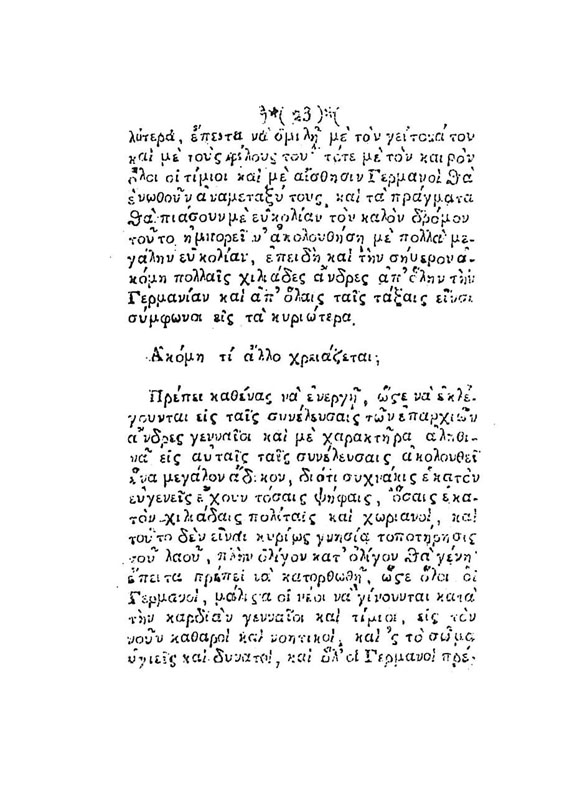 ( 23 )
λύτερα, ἔπειτα νὰ ὁμιλῇ μὲ τὸν γείτονά του
καὶ μὲ τοὺς φίλους του· τότε μὲ τὸν καιρὸν
ὅλοι οἱ τίμιοι καὶ μὲ αἴσθησιν Γερμανοὶ θὰ
ἑνωθοῦν ἀναμεταξύ τους, καὶ τὰ πράγματα
θὰ πιάσουν μὲ εὐκολίαν τὸν καλὸν δρόμον
τοῦτο ἠμπορεῖ ν' ἀκολουθήσῃ μὲ πολλὰ με-
γάλην εὐκολίαν, ἐπειδὴ καὶ τὴν σήμερον ἀ-
κόμη πολλαῖς χιλιάδες ἄνδρες ἀπ' ὅλην τὴν
Γερμανίαν καὶ ἀπ' ὅλαις ταῖς τάξαις εἶναι
σύμφωνοι εἰς τὰ κυριώτερα.
Ἀκόμη τί ἄλλο χρειάζεται;
Πρέπει καθένας νὰ ἐνεργῇ, ὥςε νὰ ἐκλέ-
γουνται εἰς ταῖς συνέλευσαις τῶν ἐπαρχιῶν
ἄνδρες γενναῖοι καὶ μὲ χαρακτῆρα ἀληθι-
νά εἰς αὐταῖς ταῖς συνέλευσαις ἀκολουθεῖ
ἕνα μεγάλον ἄδικον, διότι συχνάκις ἑκατὸν
εὐγενεῖς ἔχουν τόσαις ψήφαις, ὅσαις ἑκα-
τὸν χιλιάδαις πολῖται καὶ χωριανοὶ, καὶ
τοῦτο δὲν εἶναι κυρίως γνησία τοποτήρησις
τοῦ λαοῦ, πλὴν ὀλίγον κατ' ὀλίγον θὰ γένῃ·
ἔπειτα πρέπει νὰ κατορθωθῇ, ὥςε ὅλοι οἱ
Γερμανοὶ, μάλιςα οἱ νέοι νὰ γίνουνται κατὰ
τὴν καρδίαν γενναῖοι καὶ τίμιοι, εἰς τὸν
νοῦν καθαροὶ καὶ νοητικοὶ, καὶ 'ς τὸ σῶμα
ὑγιεῖς καὶ δυνατοὶ, καὶ ὅλ' οἱ Γερμανοὶ πρέ-